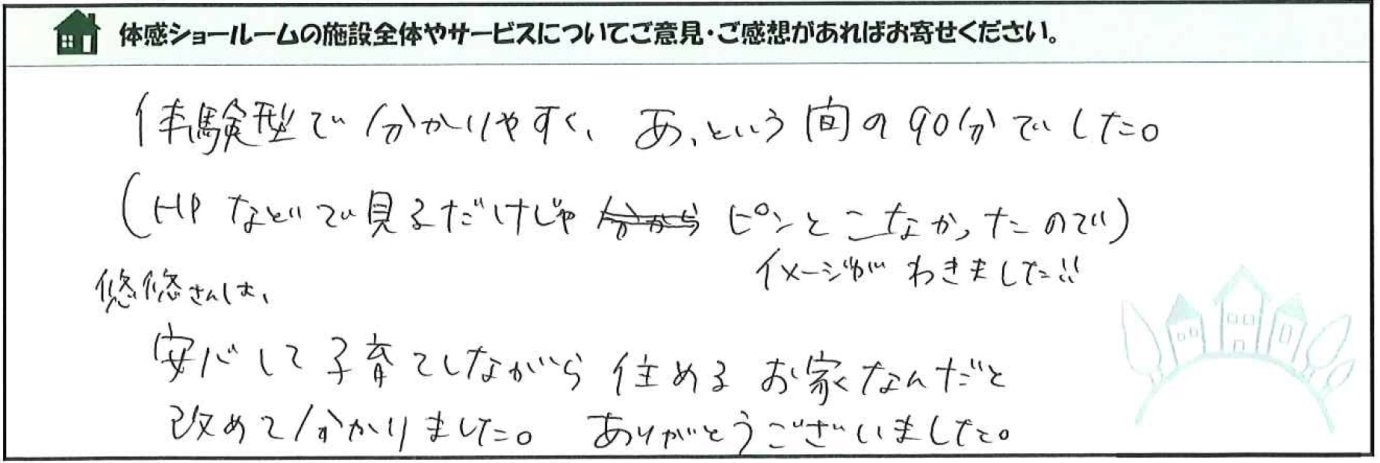 体感ショールームの施設全体やサービスについてご意見・ご感想があればお寄せください。
体験型で分かりやすく、あっという間の90分でした。
(HPなどで見るだけじゃ分からピンとこなかったので)
イメージがわきました!!
悠悠さんは、
安心して子育てしながら住めるお家なんだと
改めて分かりました。ありがとうございました。